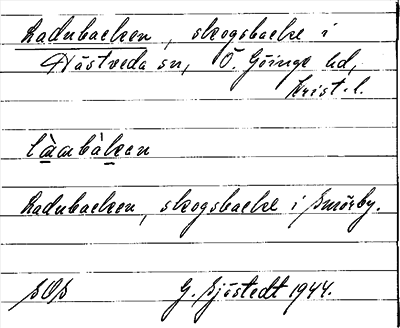 Ladubacken, skogsbacke i
Hästveda sn, Ö. Göinge hd,
Krist. l.
làmbàken
Ladubacken, skogsbacke i Smörby.
SOS G. Sjöstedt 1944.